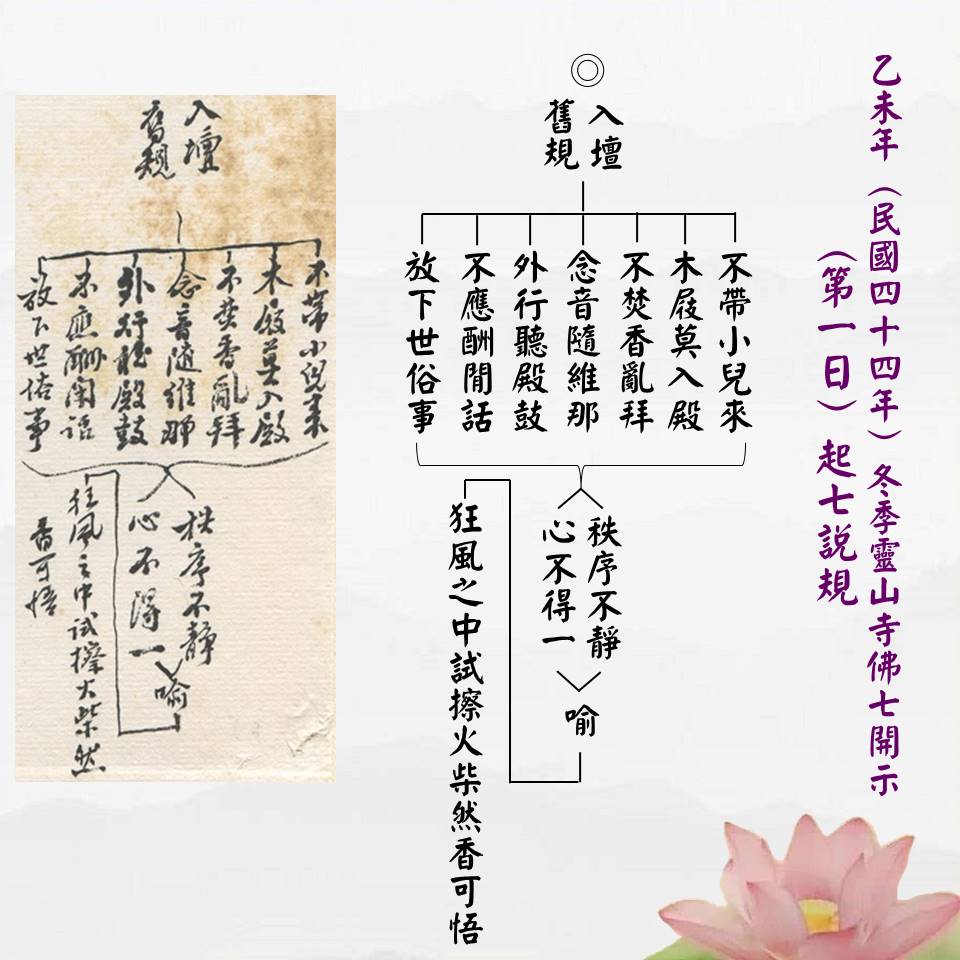 乙未年（民國四十四年）冬季靈山寺佛七開示
（第一日）起七說規
入壇
舊規
不帶小兒來
木屐莫入殿
不焚香亂拜
念音隨維那
外行聽殿鼓
不應酬閒話
放下世俗事
秩序不靜
心不得一
喻
狂風之中試擦火柴然香可悟
入壇
舊規
不帶小兒來
木屐莫入殿
不焚香亂拜
念音隨維那
外行聽殿鼓
不應酬閒話
放下世俗事
秩序不靜
心不得一
喻
狂風之中試擦火柴然
香可悟